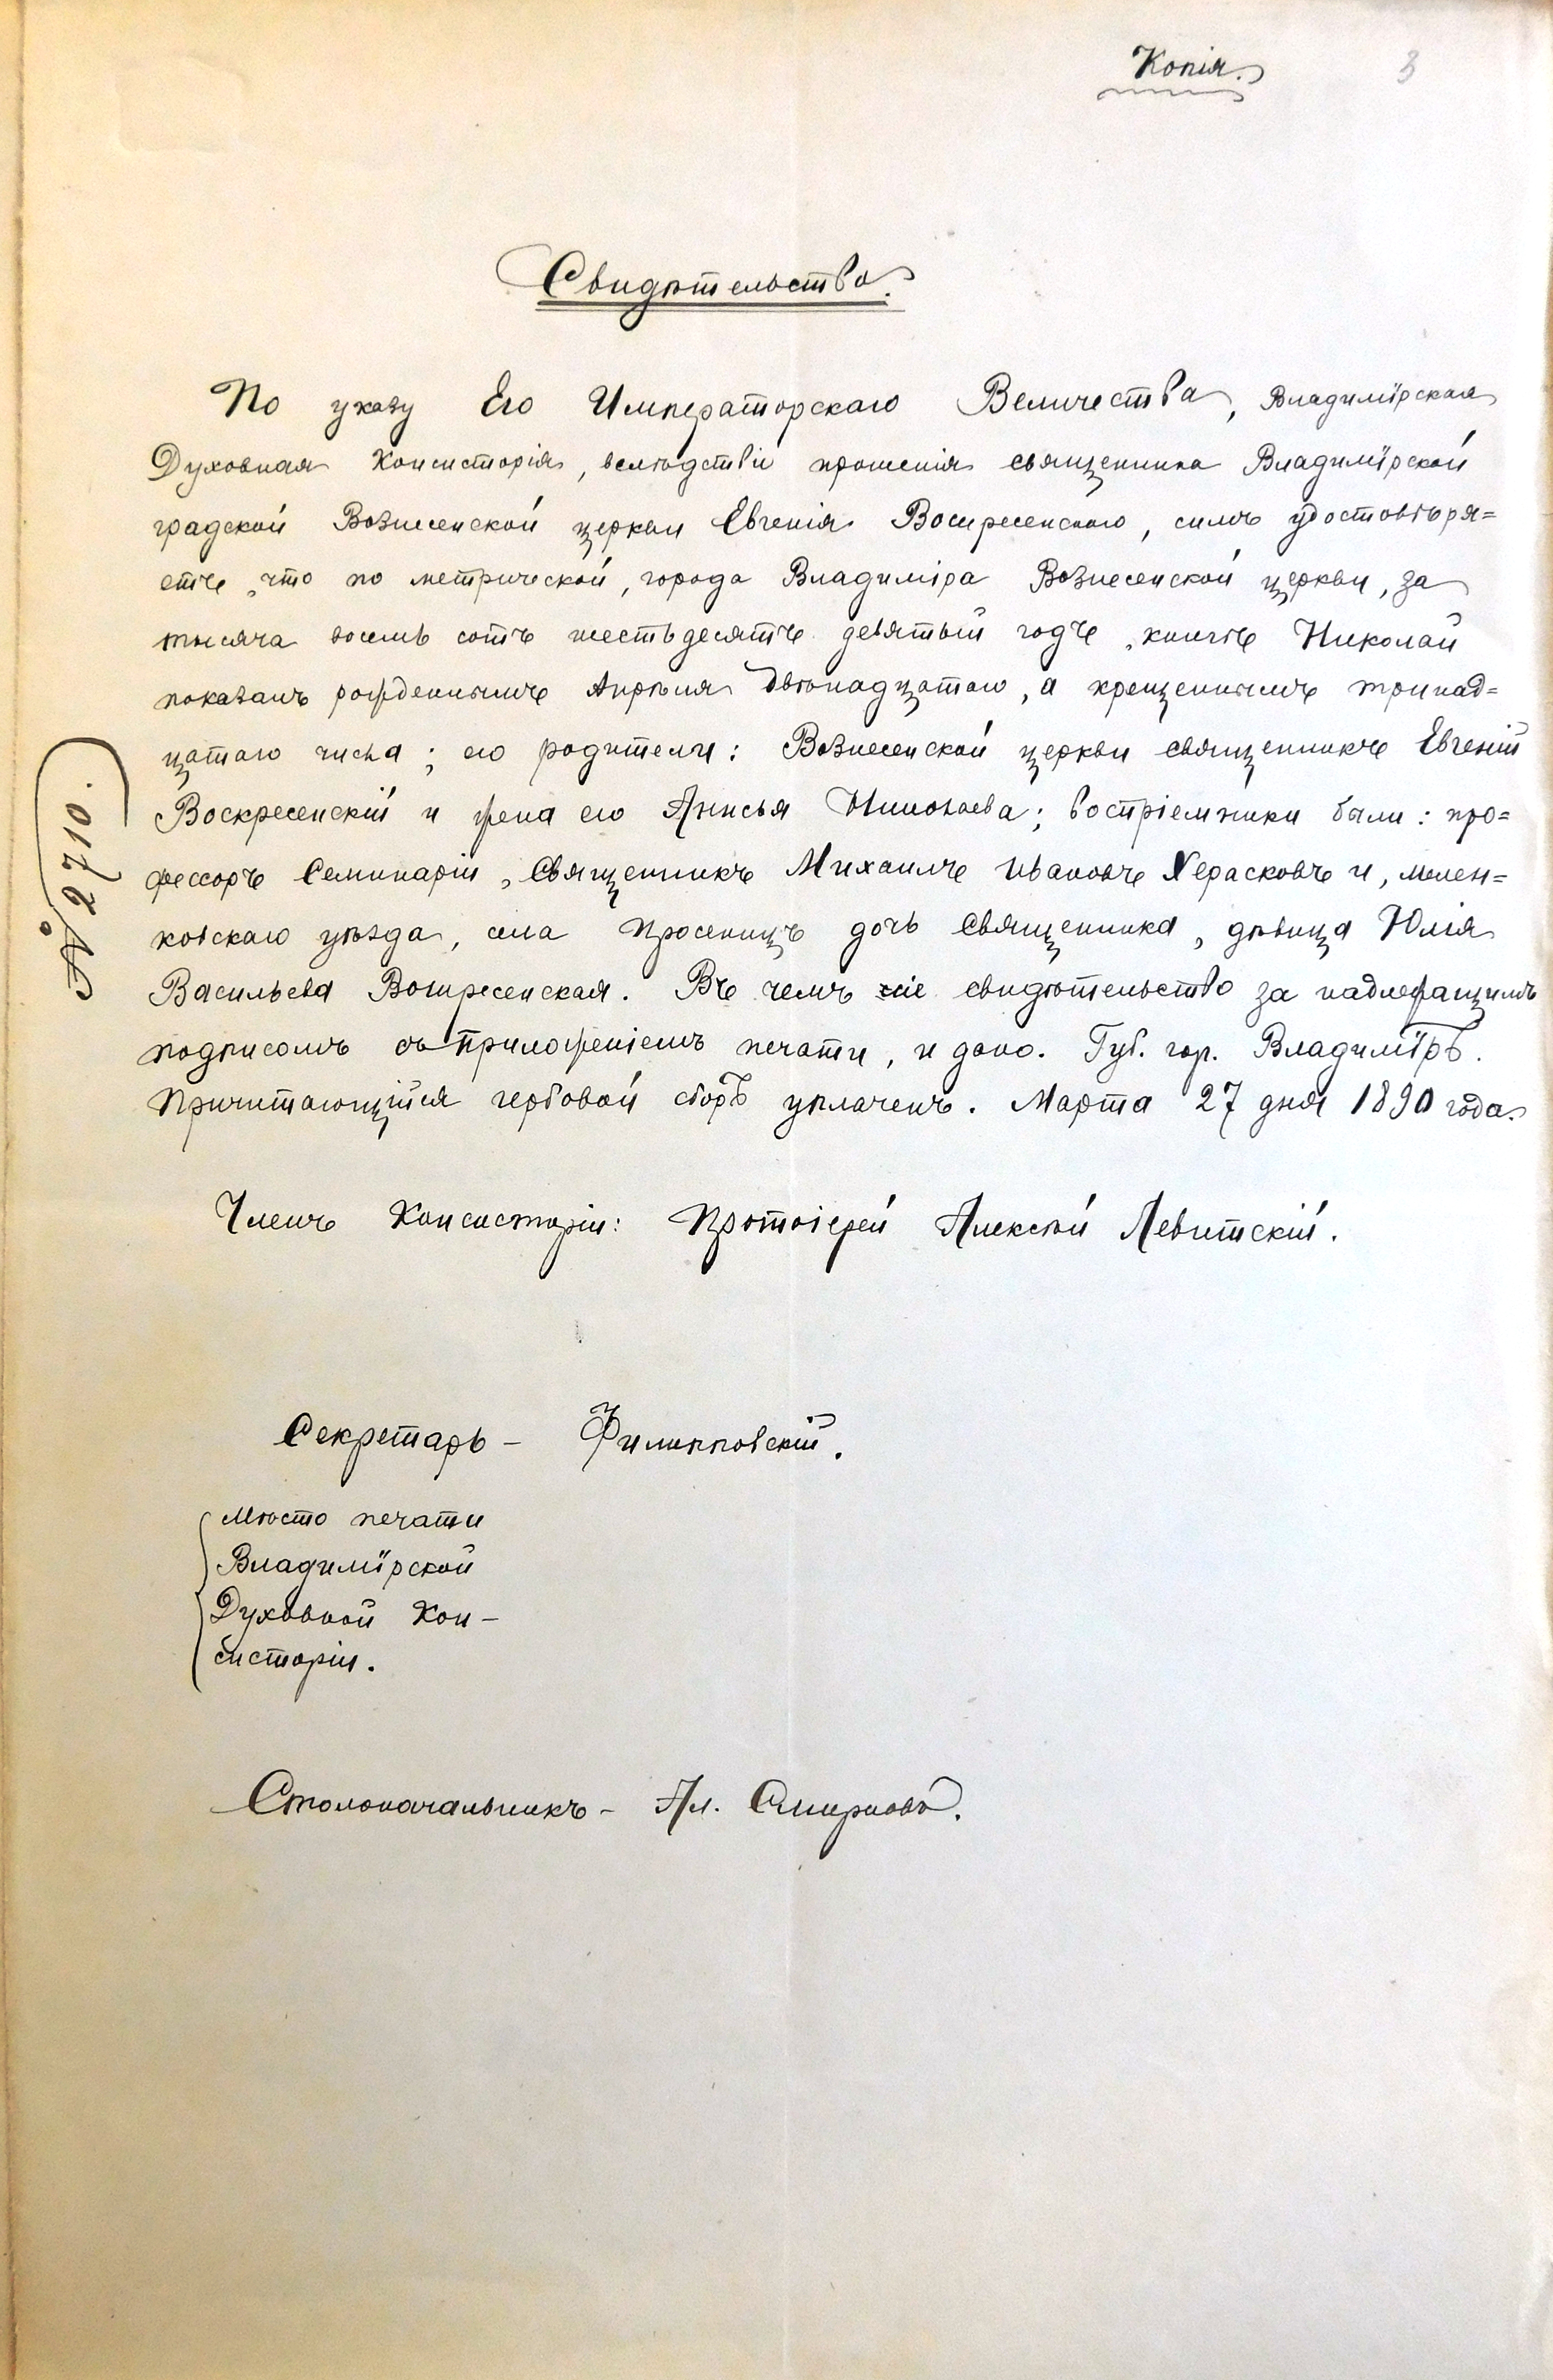 Копія.
3
Свидѣтельство.
По указу Его Императорскаго Величества, Владимірская
Духовная Консисторія, вслѣдствіе прошенія священника Владимірской
градской Вознесенской церкви Евгенія Воскресенскаго, симъ удостовѣря=
етъ, что по метрической, города Владиміра Вознесенской церкви, за
тысяча восемь сотъ шестьдесятъ девятый годъ, книгѣ Николай
показанъ рожденнымъ Апрѣля двѣнадцатаго, а крещеннымъ тринад=
цатаго числа; его родители: Вознесенской церкви священникъ Евгеній
Воскресенскій и жена его Анисья Николаева; востріемники были: про=
фессоръ Семинаріи, Священникъ Михаилъ Ивановъ Херасковъ и, мелен=
ковскаго уѣзда, села Просеницъ дочь священника, дѣвица Юлія
Васильева Воскресенская. Въ чемъ сіе свидѣтельство за надлежащимъ
подписомъ съ приложеніемъ печати, и дано. Губ. гор. Владиміръ.
Причитающійся гербовой сборъ уплаченъ. Марта 27 дня 1890 года.
№ 2710.
Членъ Консисторіи: Протоіерей Алексѣй Левитскій.
Секретарь - Филипповскій.
Мѣсто печати
Владимірской
Духовной Кон-
систоріи.
Столоначальникъ - Ал. Смирновъ.